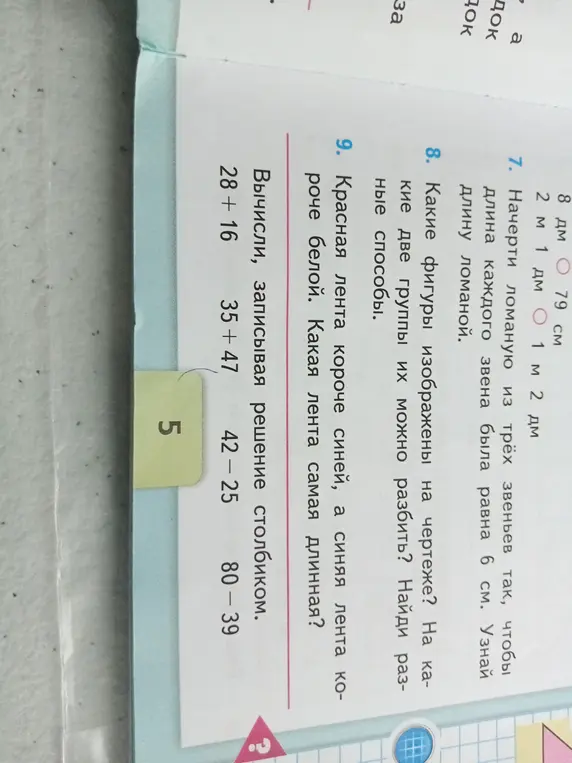 , а
док
док
за
8 дм ○ 79 см
2 м 1 дм ○ 1 м 2 дм
7. Начерти ломаную из трёх звеньев так, чтобы
длина каждого звена была равна 6 см. Узнай
длину ломаной.
8. Какие фигуры изображены на чертеже? На ка-
кие две группы их можно разбить? Найди раз-
ные способы.
9. Красная лента короче синей, а синяя лента ко-
роче белой. Какая лента самая длинная?
Вычисли, записывая решение столбиком.
28 + 16 35 + 47 42 − 25 80 − 39
?
5